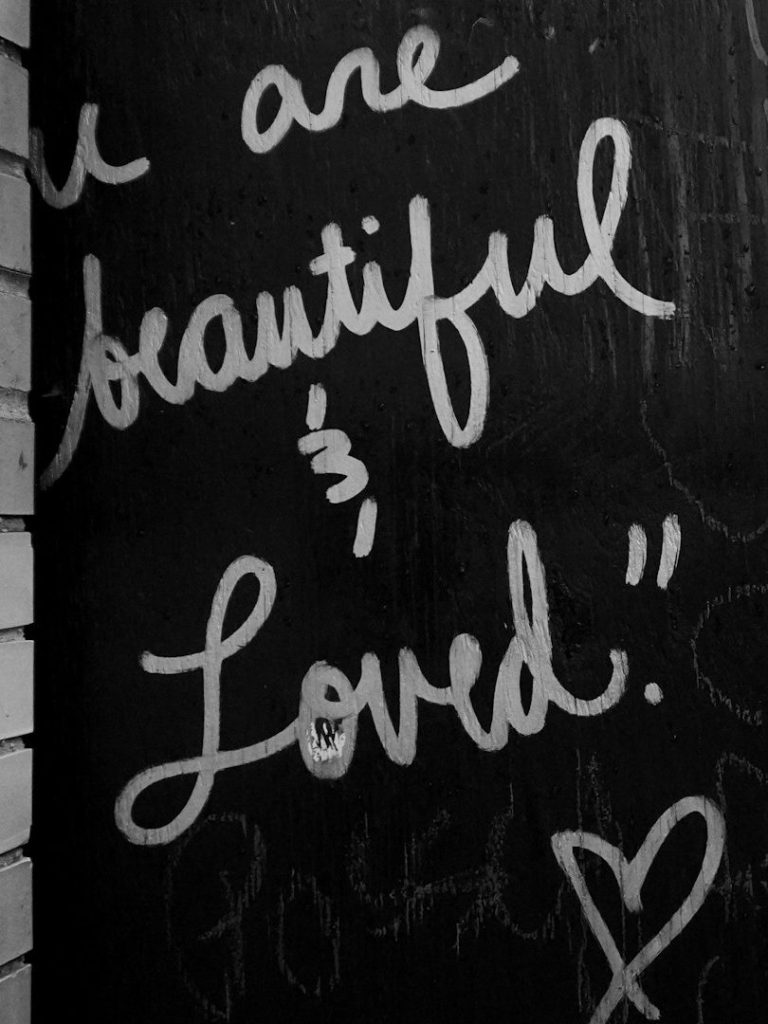 u are
beautiful
&
Loved."